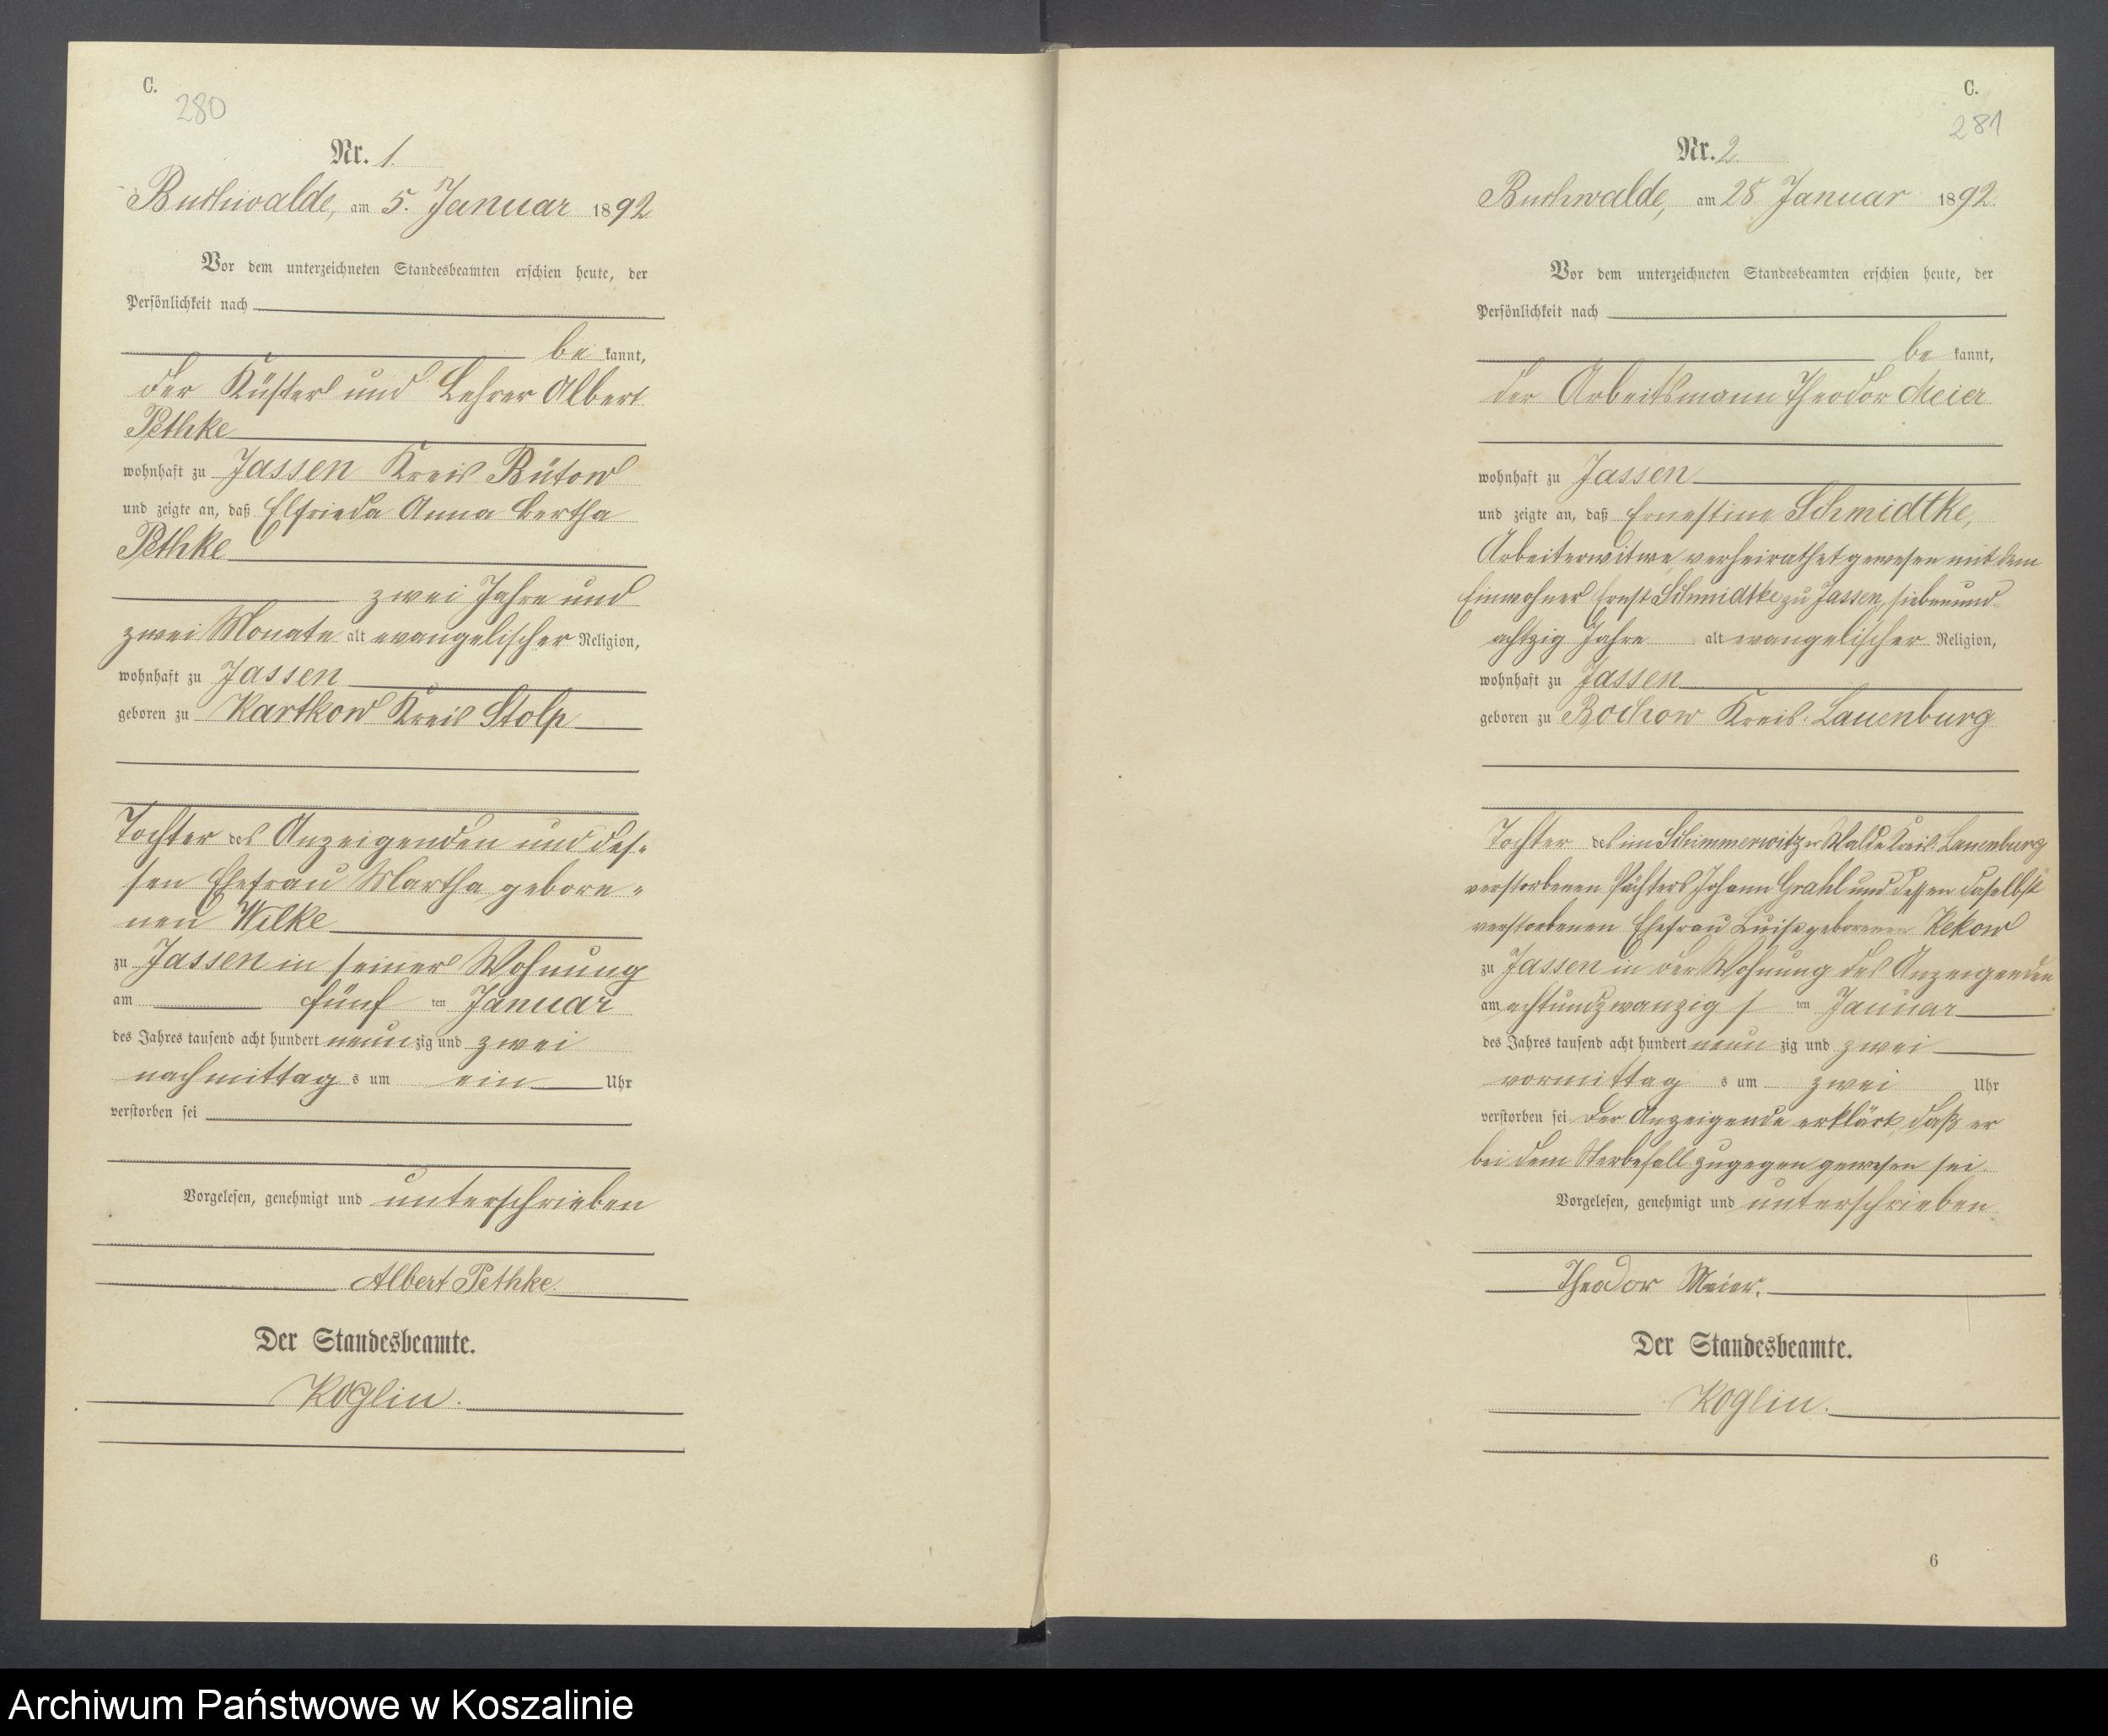 C.
280
Nr. 1.
Buchwalde, am 5. Januar 1892
Vor dem unterzeichneten Standesbeamten erschien heute, der
Persönlichkeit nach
be kannt,
der Küster und Lehrer Albert
Pethke
wohnhaft zu Jassen Kreis Bütow
und zeigte an, daß Elfrieda Anna Bertha
Pethke
zwei Jahre und
zwei Monate alt evangelischer Religion,
wohnhaft zu Jassen
geboren zu Kartkow Kreis Stolp
Tochter des Anzeigenden und des-
sen Ehefrau Martha gebore-
nen Wilke
zu Jassen in seiner Wohnung
am fünf ten Januar
des Jahres tausend acht hundert neunzig und zwei
nachmittag s um ein Uhr
verstorben sei
Vorgelesen, genehmigt und unterschrieben
Albert Pethke.
Der Standesbeamte.
Koglin.
C.
281
Nr. 2.
Buchwalde, am 28. Januar 1892.
Vor dem unterzeichneten Standesbeamten erschien heute, der
Persönlichkeit nach
be kannt,
der Arbeitsmann Theodor Meier
wohnhaft zu Jassen
und zeigte an, daß Ernestine Schmidtke,
Arbeiterwitwe, verheirathet gewesen mit dem
Einwohner Ernst Schmidtke zu Jassen, siebenund-
achtzig Jahre alt evangelischer Religion,
wohnhaft zu Jassen
geboren zu Rochow Kreis Lauenburg
Tochter des im Schimmerwitzer Walde Kreis Lauenburg
verstorbenen Pächters Johann Grahl und dessen daselbst
verstorbenen Ehefrau Luise geborenen Rekow
zu Jassen in der Wohnung des Anzeigenden
am achtundzwanzig s ten Januar
des Jahres tausend acht hundert neun zig und zwei
vormittag s um zwei Uhr
verstorben sei. Der Anzeigende erklärt, daß er
bei dem Sterbefall zugegen gewesen sei.
Vorgelesen, genehmigt und unterschrieben
Theodor Meier.
Der Standesbeamte.
Koglin.
6
Archiwum Państwowe w Koszalinie